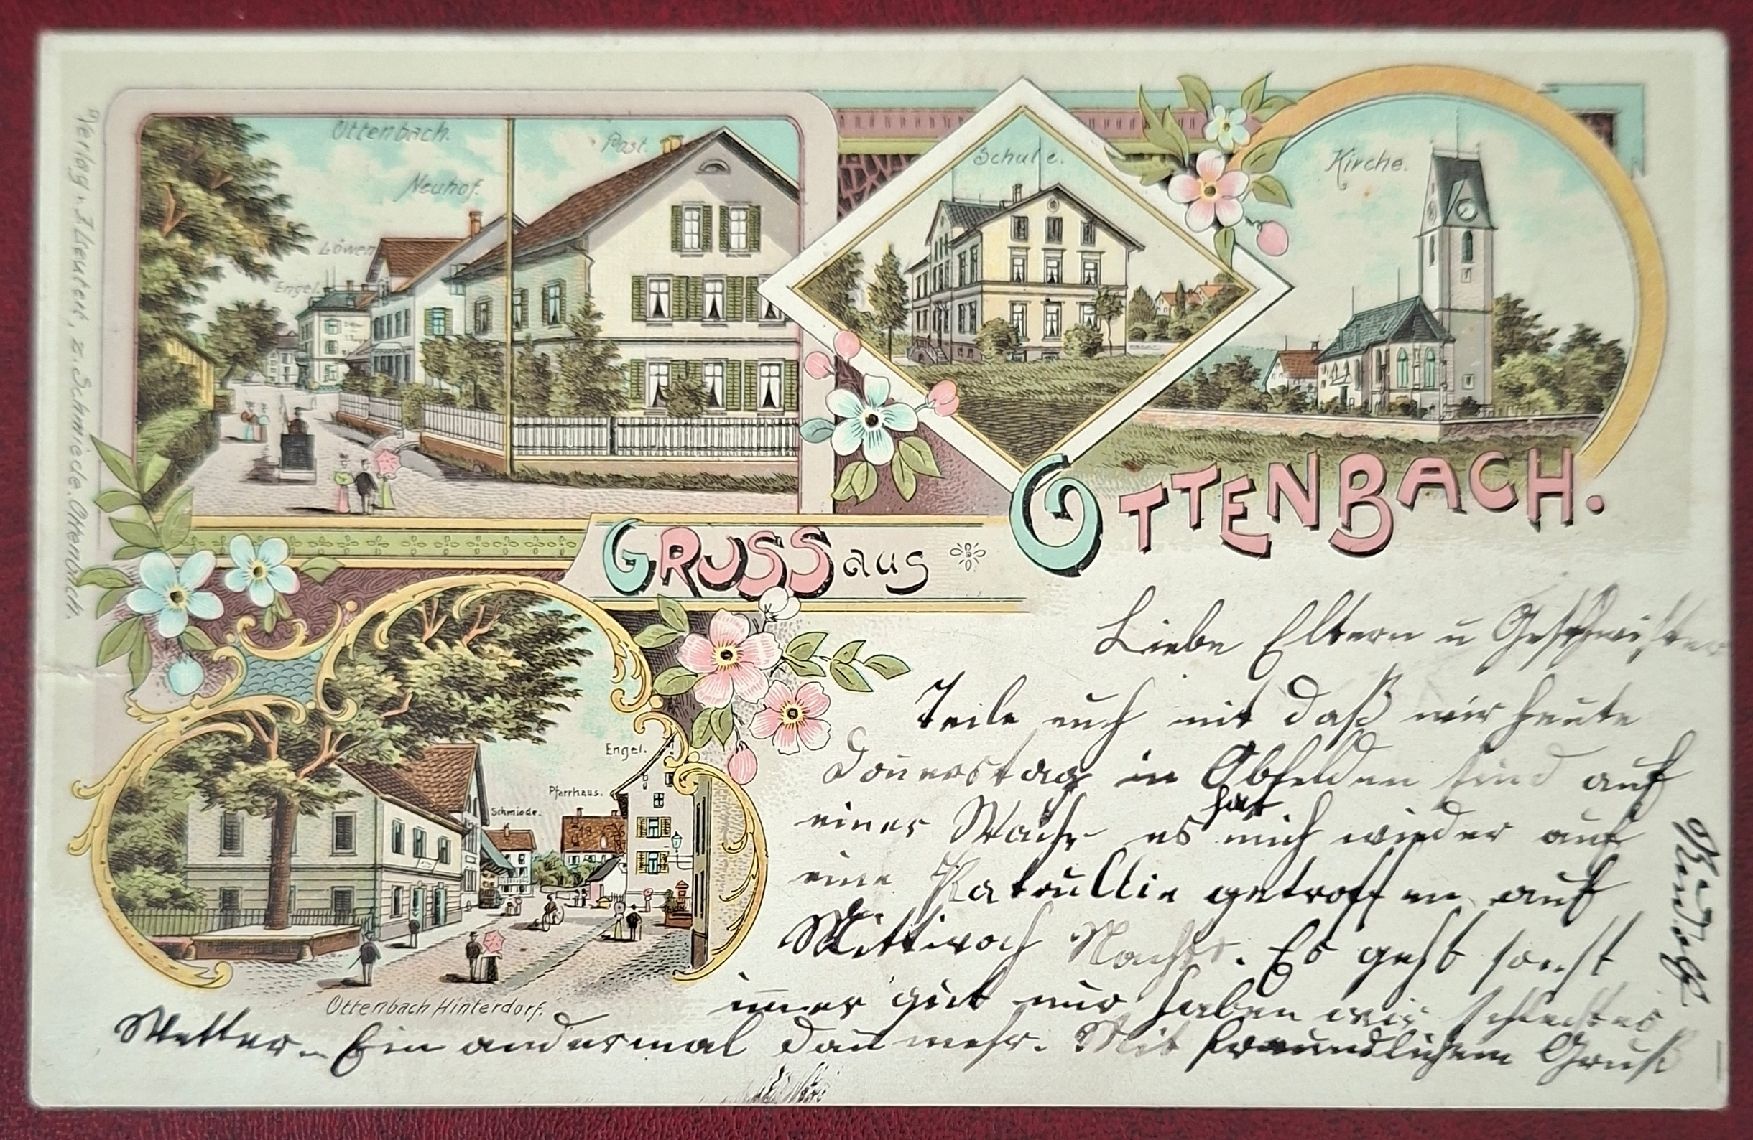 Verlag v. J. Leutert, z. Schmiede. Ottenbach.
Ottenbach.
Post.
Neuhof.
Löwen
Engel.
Schule.
Kirche.
GRUSS aus
OTTENBACH.
Engel.
Pfarrhaus.
Schmiede.
Ottenbach Hinterdorf.
Liebe Eltern u Geschwister
Teile euch mit daß wir heute
Donnerstag in Obfelden sind auf
einer Wache es hat mich wieder auf
eine Patrullie getroffen auf
Mittwoch Nachts. Es geht sonst
immer gut nur haben wir schlechtes
Wetter. Ein andermal dan mehr. Mit freundlichem Gruß